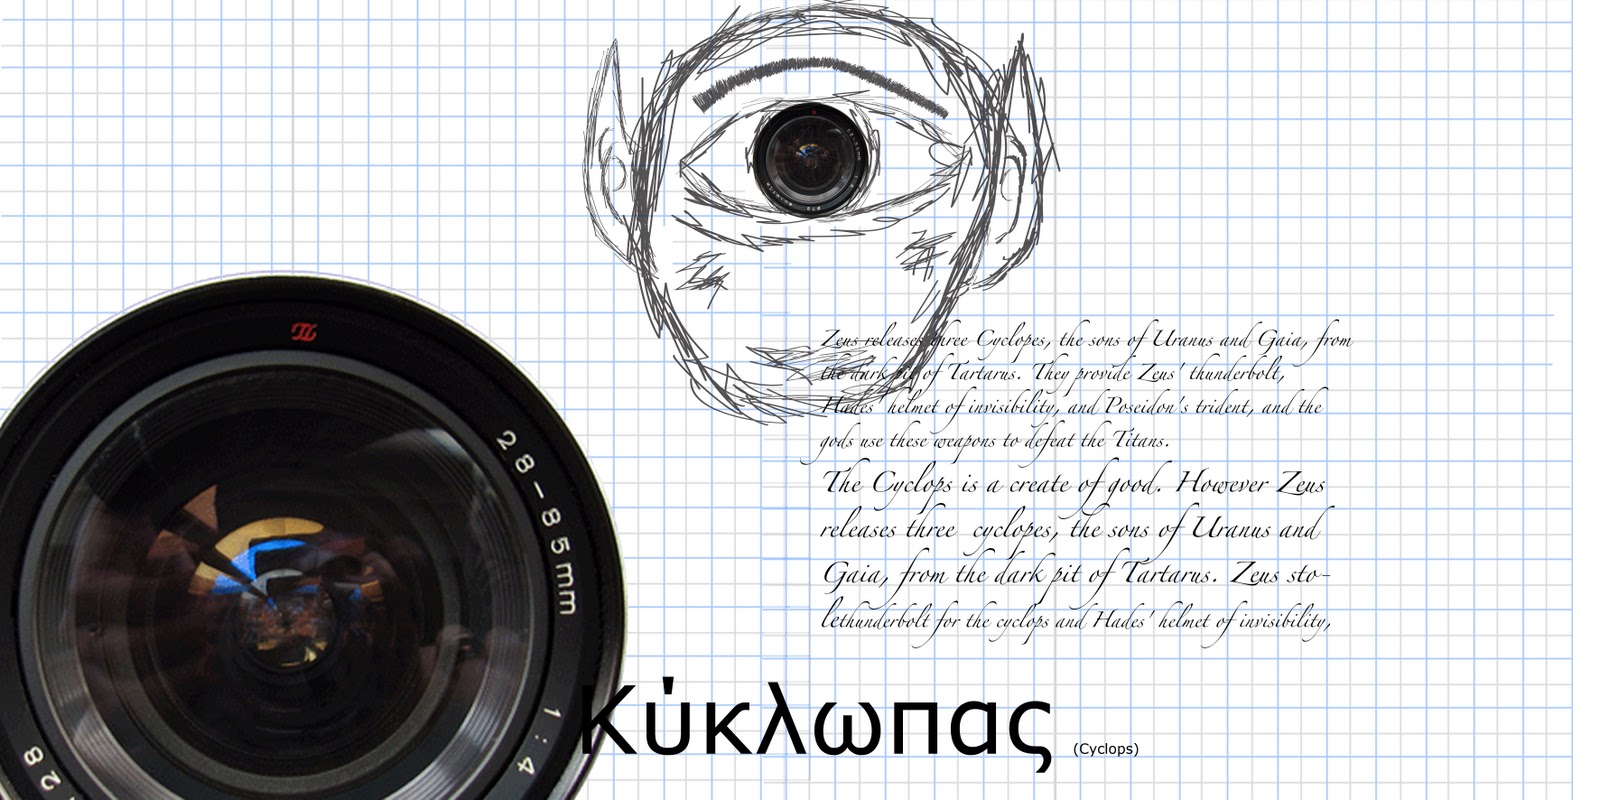 Zeus releases three Cyclopes, the sons of Uranus and Gaia, from
the dark pit of Tartarus. They provide Zeus' thunderbolt,
Hades' helmet of invisibility, and Poseidon's trident, and the
gods use these weapons to defeat the Titans.
The Cyclops is a create of good. However Zeus
releases three cyclopes, the sons of Uranus and
Gaia, from the dark pit of Tartarus. Zeus sto-
lethunderbolt for the cyclops and Hades' helmet of invisibility,
28-85mm
1:4
28
Κύκλωπας (Cyclops)